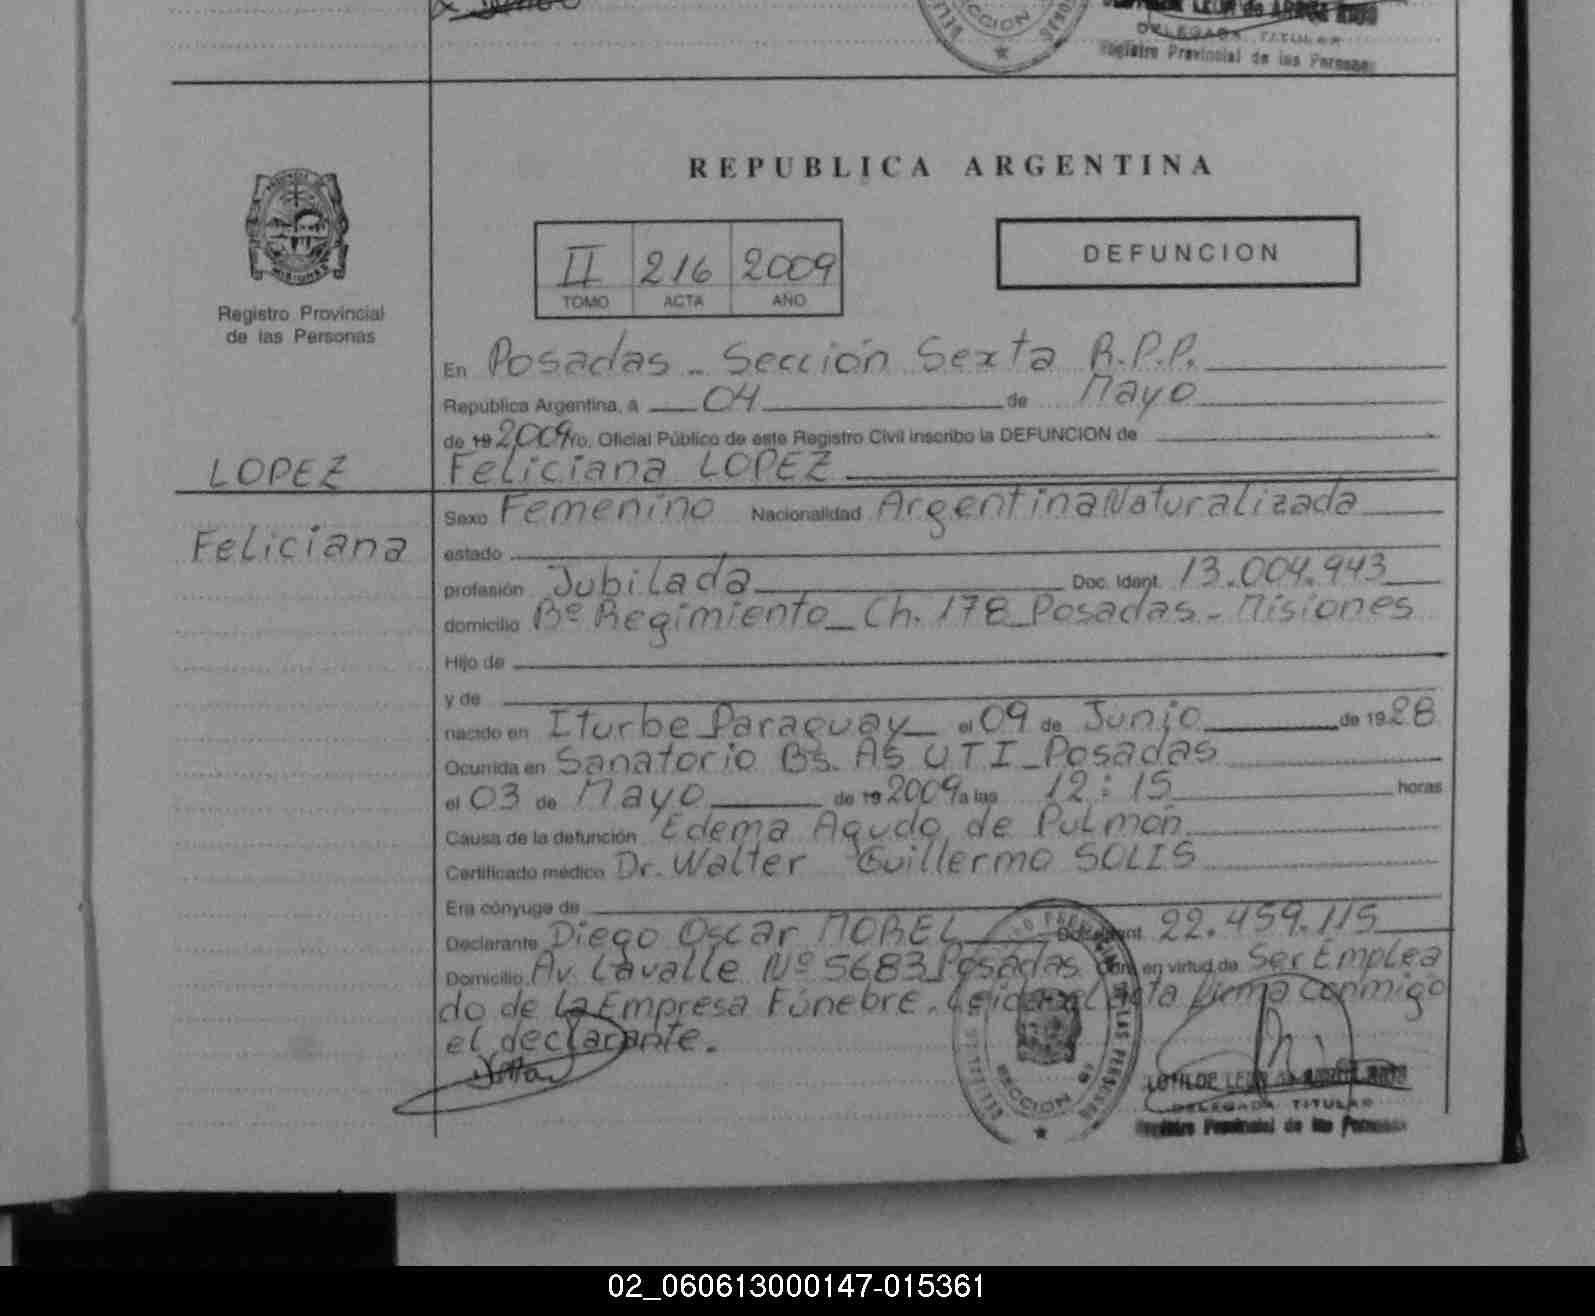 DELEGADA TITULAR
Registro Provincial de las Personas
REPUBLICA ARGENTINA
II 216 2009
TOMO ACTA AÑO
DEFUNCION
Registro Provincial
de las Personas
En Posadas - Sección Sexta R.P.P.
República Argentina, a 04 de Mayo
de 19 2009 Yo, Oficial Público de este Registro Civil inscribo la DEFUNCION de
LOPEZ Feliciana LOPEZ
Sexo Femenino Nacionalidad Argentina Naturalizada
Feliciana estado
profesión Jubilada Doc. Ident. 13.004.943
domicilio Bº Regimiento - Ch. 178 - Posadas - Misiones
Hijo de
y de
nacido en Iturbe Paraguay el 09 de Junio de 1928
Ocurrida en Sanatorio Bs. As UTI - Posadas
el 03 de Mayo de 19 2009 a las 12:15 horas
Causa de la defunción Edema Agudo de Pulmón
Certificado médico Dr. Walter Guillermo SOLIS
Era cónyuge de
Declarante Diego Oscar MOREL Doc. Ident. 22.459.115
Domicilio Av. Lavalle Nº 5683 Posadas en virtud de Ser Emplea
do de la Empresa Fúnebre. Leida el acta firma conmigo
el declarante.
SECCION
DELEGADA TITULAR
Registro Provincial de las Personas
02_060613000147-015361